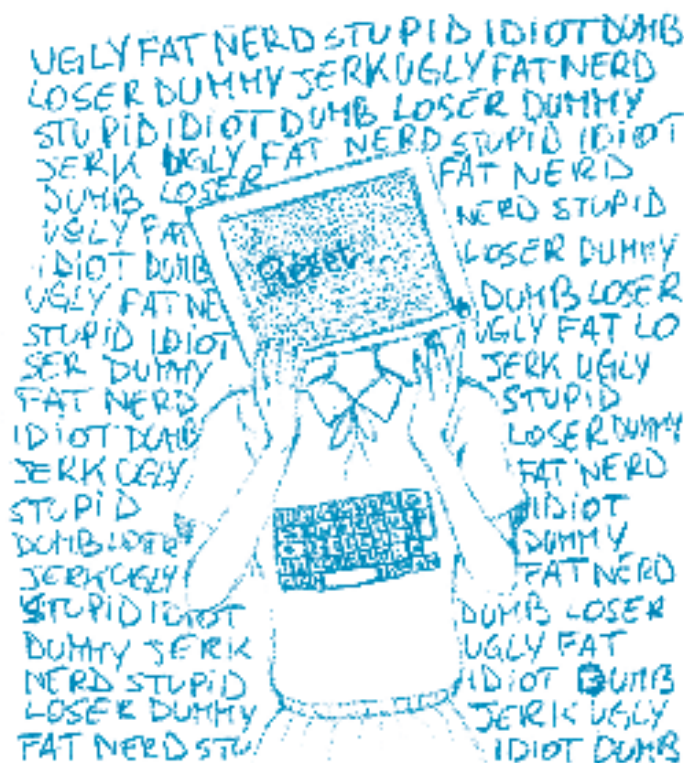 UGLY FAT NERD STUPID IDIOT DUMB
LOSER DUMMY JERK UGLY FAT NERD
STUPID IDIOT DUMB LOSER DUMMY
JERK UGLY FAT NERD STUPID IDIOT
DUMB LOSER FAT NERD
UGLY FAT NERD STUPID
IDIOT DUMB LOSER DUMMY
Reset
UGLY FAT NE DUMB LOSER
STUPID IDIOT UGLY FAT LO
SER DUMMY JERK UGLY
FAT NERD STUPID
IDIOT DUMB LOSER DUMMY
JERK UGLY FAT NERD
STUPID IDIOT
DUMB LOSER DUMMY
JERK UGLY FAT NERD
STUPID IDIOT DUMB LOSER
DUMMY JERK UGLY FAT
NERD STUPID IDIOT DUMB
LOSER DUMMY JERK UGLY
FAT NERD STU IDIOT DUMB